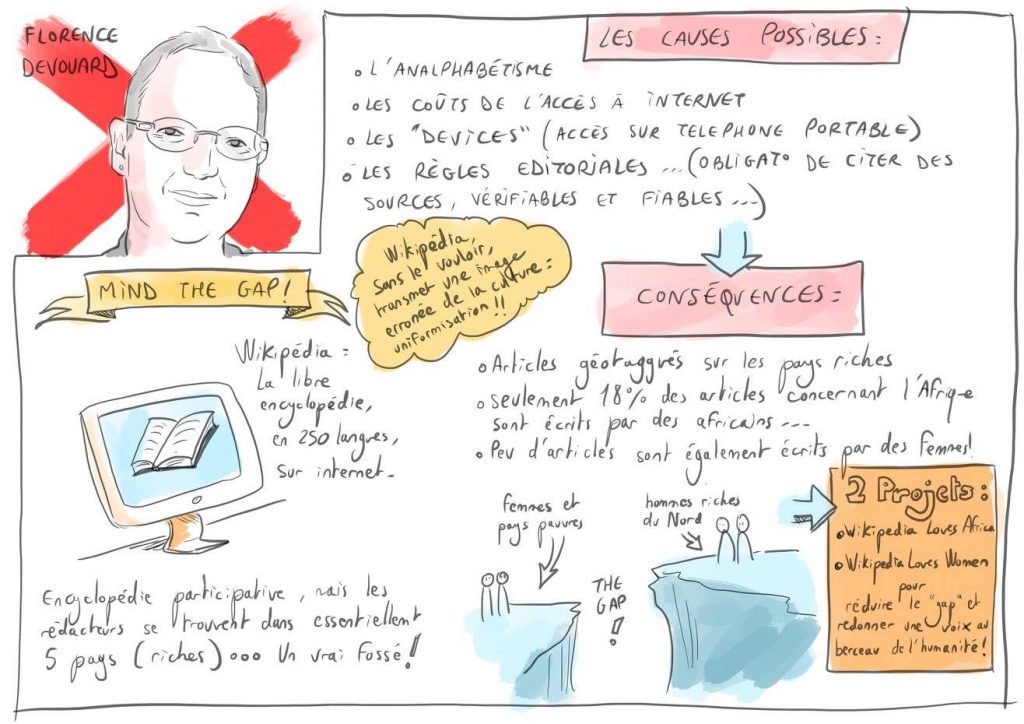 FLORENCE
DEVOUARD
LES CAUSES POSSIBLES :
• L'ANALPHABÉTISME
• LES COÛTS DE L'ACCÈS À INTERNET
• LES "DEVICES" (ACCÈS SUR TELEPHONE PORTABLE)
• LES RÈGLES EDITORIALES ... (OBLIGATO DE CITER DES
SOURCES, VÉRIFIABLES ET FIABLES ...)
MIND THE GAP !
Wikipédia,
sans le vouloir,
transmet une image
erronée de la culture :
uniformisation !!
CONSÉQUENCES :
Wikipédia :
La libre
encyclopédie,
en 250 langues,
sur internet.
• Articles géotaggués sur les pays riches
• Seulement 18% des articles concernant l'Afrique
sont écrits par des africains ...
• Peu d'articles sont également écrits par des femmes !
femmes et
pays pauvres
hommes riches
du Nord
THE
GAP
!
2 Projets :
• Wikipedia Loves Africa
• Wikipedia Loves Women
pour
réduire le "gap" et
redonner une voix au
berceau de l'humanité !
Encyclopédie participative, mais les
rédacteurs se trouvent dans essentiellent
5 pays (riches) ... Un vrai fossé !